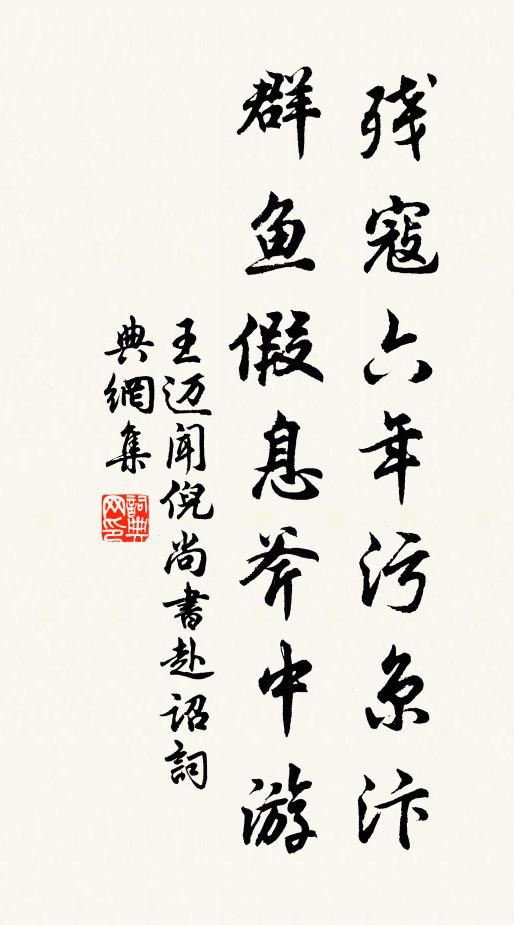 残寇六年污京汴
群鱼假息斧中游
王迈闻倪尚書赴诏詞
典網集
詞典網印